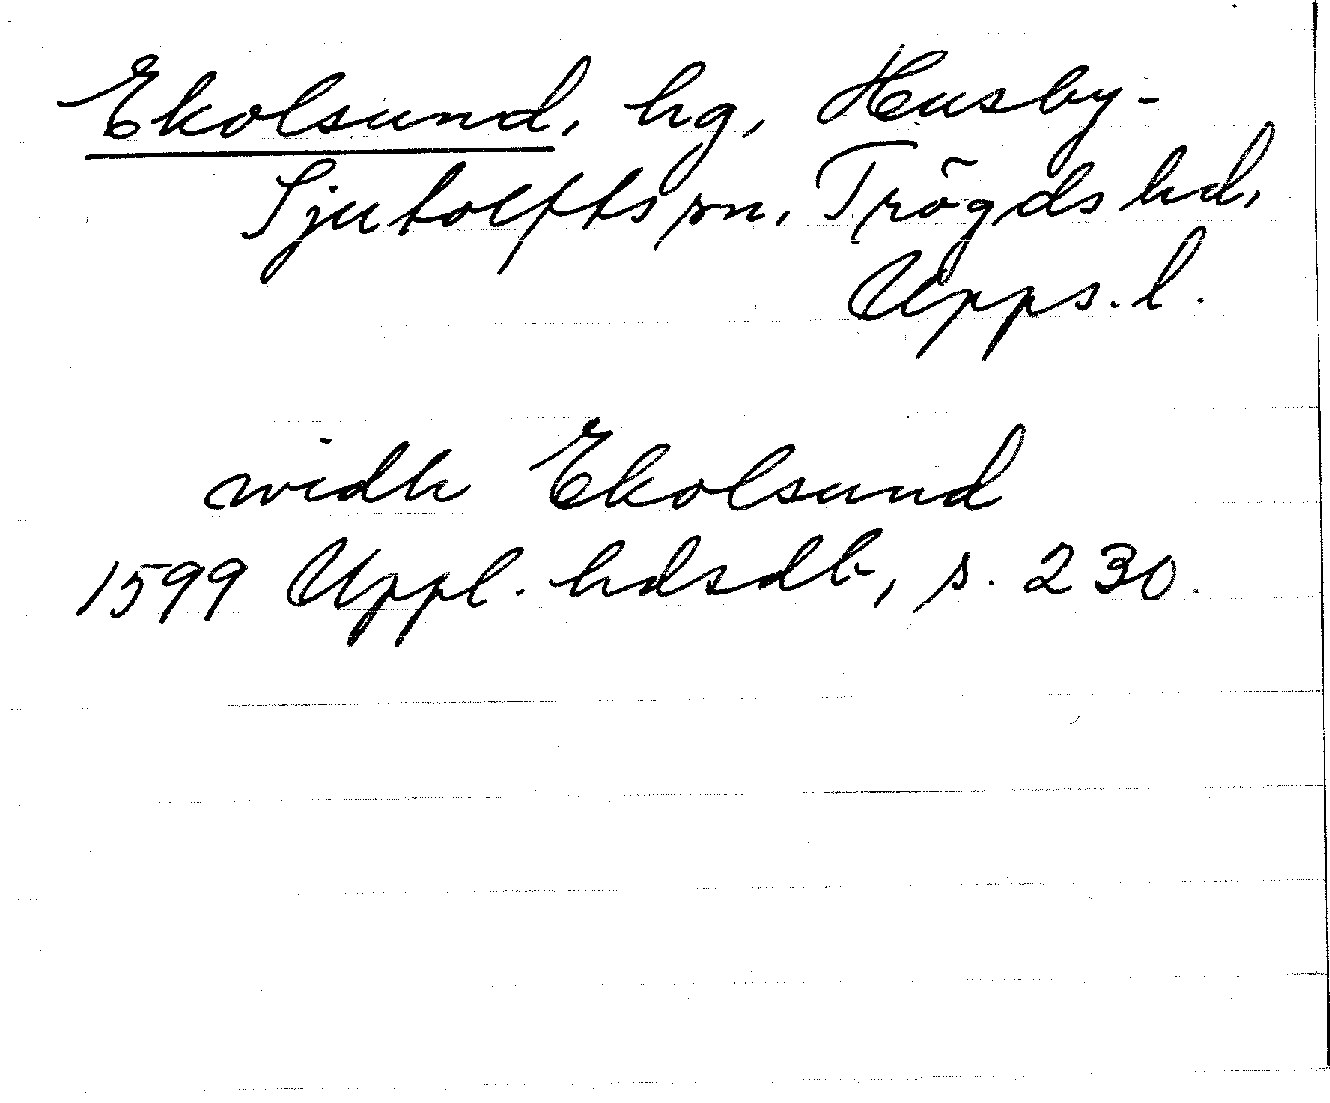 Ekolsund, hg, Husby-
Sjutolfts sn, Trögds hd,
Upps. l.
widh Ekolsund
1599 Uppl. hdsdb, s. 230.